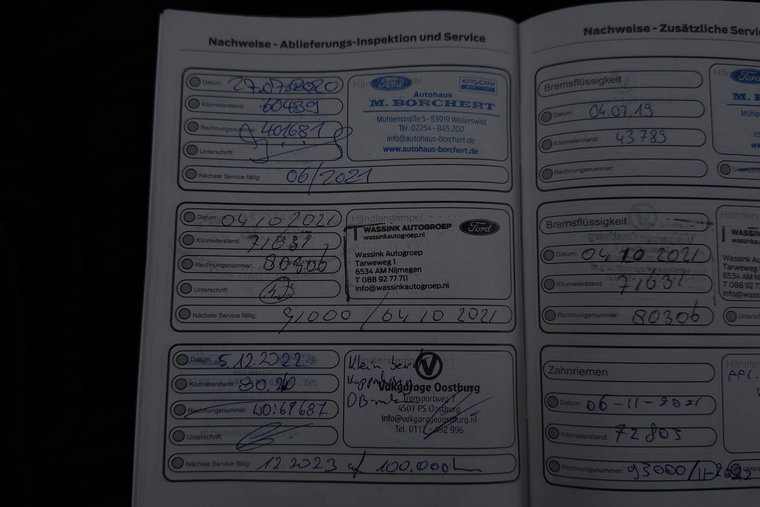 Nachweise - Ablieferungs-Inspektion und Service
Datum: 27.07.2020
Kilometerstand: 60439
Rechnungsnummer: 401681
Unterschrift:
Nächste Service fällig: 06/2021
Ford
Autohaus
M. BORCHERT
Mühlenstraße 5 - 53919 Weilerswist
Tel. 02254 - 845 200
info@autohaus-borchert.de
www.autohaus-borchert.de
Datum: 04 10 2021
Kilometerstand: 71631
Rechnungsnummer: 80306
Unterschrift:
Nächste Service fällig: 91000 / 04 10 2021
Händlerstempel
WASSINK AUTOGROEP
wassinkautogroep.nl
Ford
Wassink Autogroep
Tarweweg 1
6534 AM Nijmegen
T 088 92 77 711
info@wassinkautogroep.nl
Datum: 5.12.2022
Kilometerstand:
Rechnungsnummer:
Unterschrift:
Nächste Service fällig: 12.2023 of 100.000km
Klein
Vakgarage Oostburg
Transportweg 7
4501 PS Oostburg
info@vakgarageoostburg.nl
Nachweise - Zusätzliche
Bremsflüssigkeit
Datum: 04.07.19
Kilometerstand: 43783
Rechnungsnummer:
Ford
Bremsflüssigkeit
Datum: 04 10 2021
Kilometerstand: 71631
Rechnungsnummer: 80306
Zahnriemen
Datum: 06-11-2021
Kilometerstand: 72803
Rechnungsnummer: 93000/11-2022